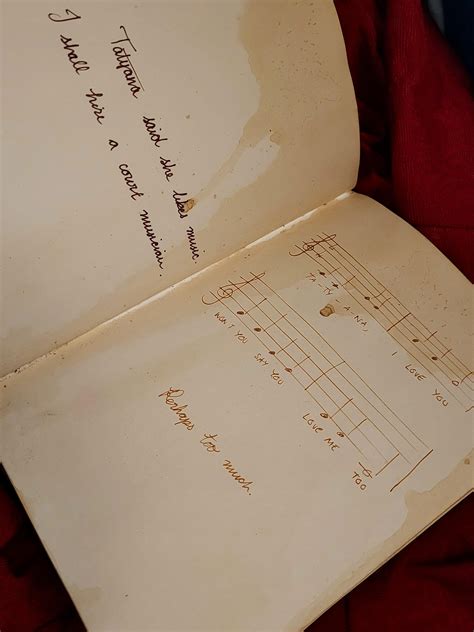 Tatyana said she likes music.
I shall hire a court musician.
TA-TY-A-NA, I LOVE YOU
WON'T YOU SAY YOU LOVE ME TOO
Perhaps too much.